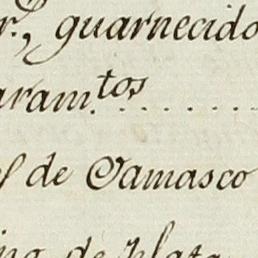 r., guarnecido
aram.tos ........
de Damasco
de plata